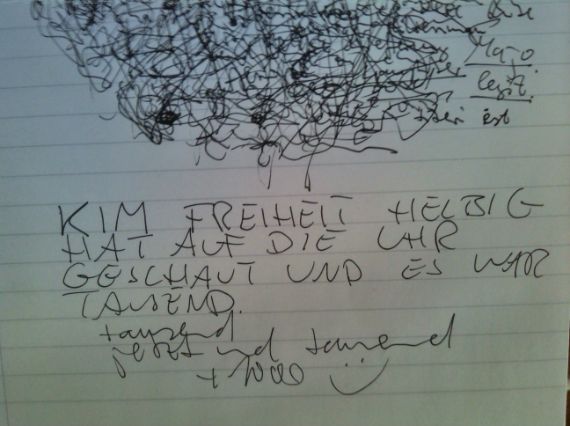 Majo
legit.
ist
KIM FREIHEIT HELBIG
HAT AUF DIE UHR
GESCHAUT UND ES WAR
TAUSEND.
tausend
jetzt und tausend
+ 1000